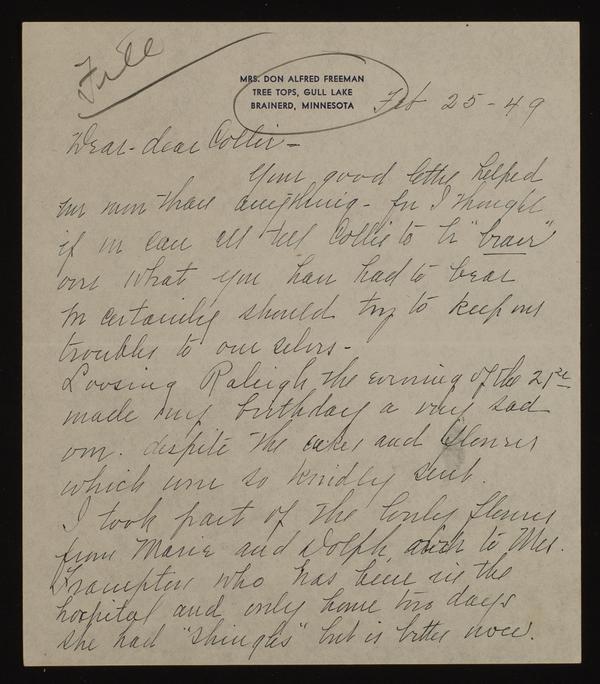 File
MRS. DON ALFRED FREEMAN
TREE TOPS, GULL LAKE
BRAINERD, MINNESOTA
Feb 25-49
Dear-dear Collie-
Your good letter helped
me more than anything - for I thought
if we can all tell Collie to be "brave"
over what you have had to bear
we certainly should try to keep our
troubles to our selves -
Loosing Raleigh the evening of the 21st
made my birthday a very sad
one. despite the cakes and flowers
which were so kindly sent.
I took part of the lovely flowers
from Marie and Dolph, over to Mrs.
Frampton who has been in the
hospital and only home two days
she had "shingles" but is better now.